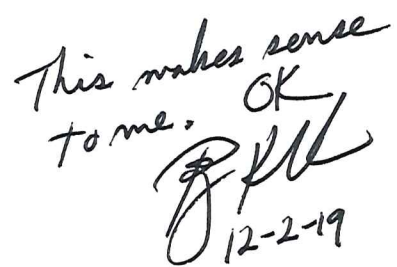 This makes sense
to me. OK
12-2-19